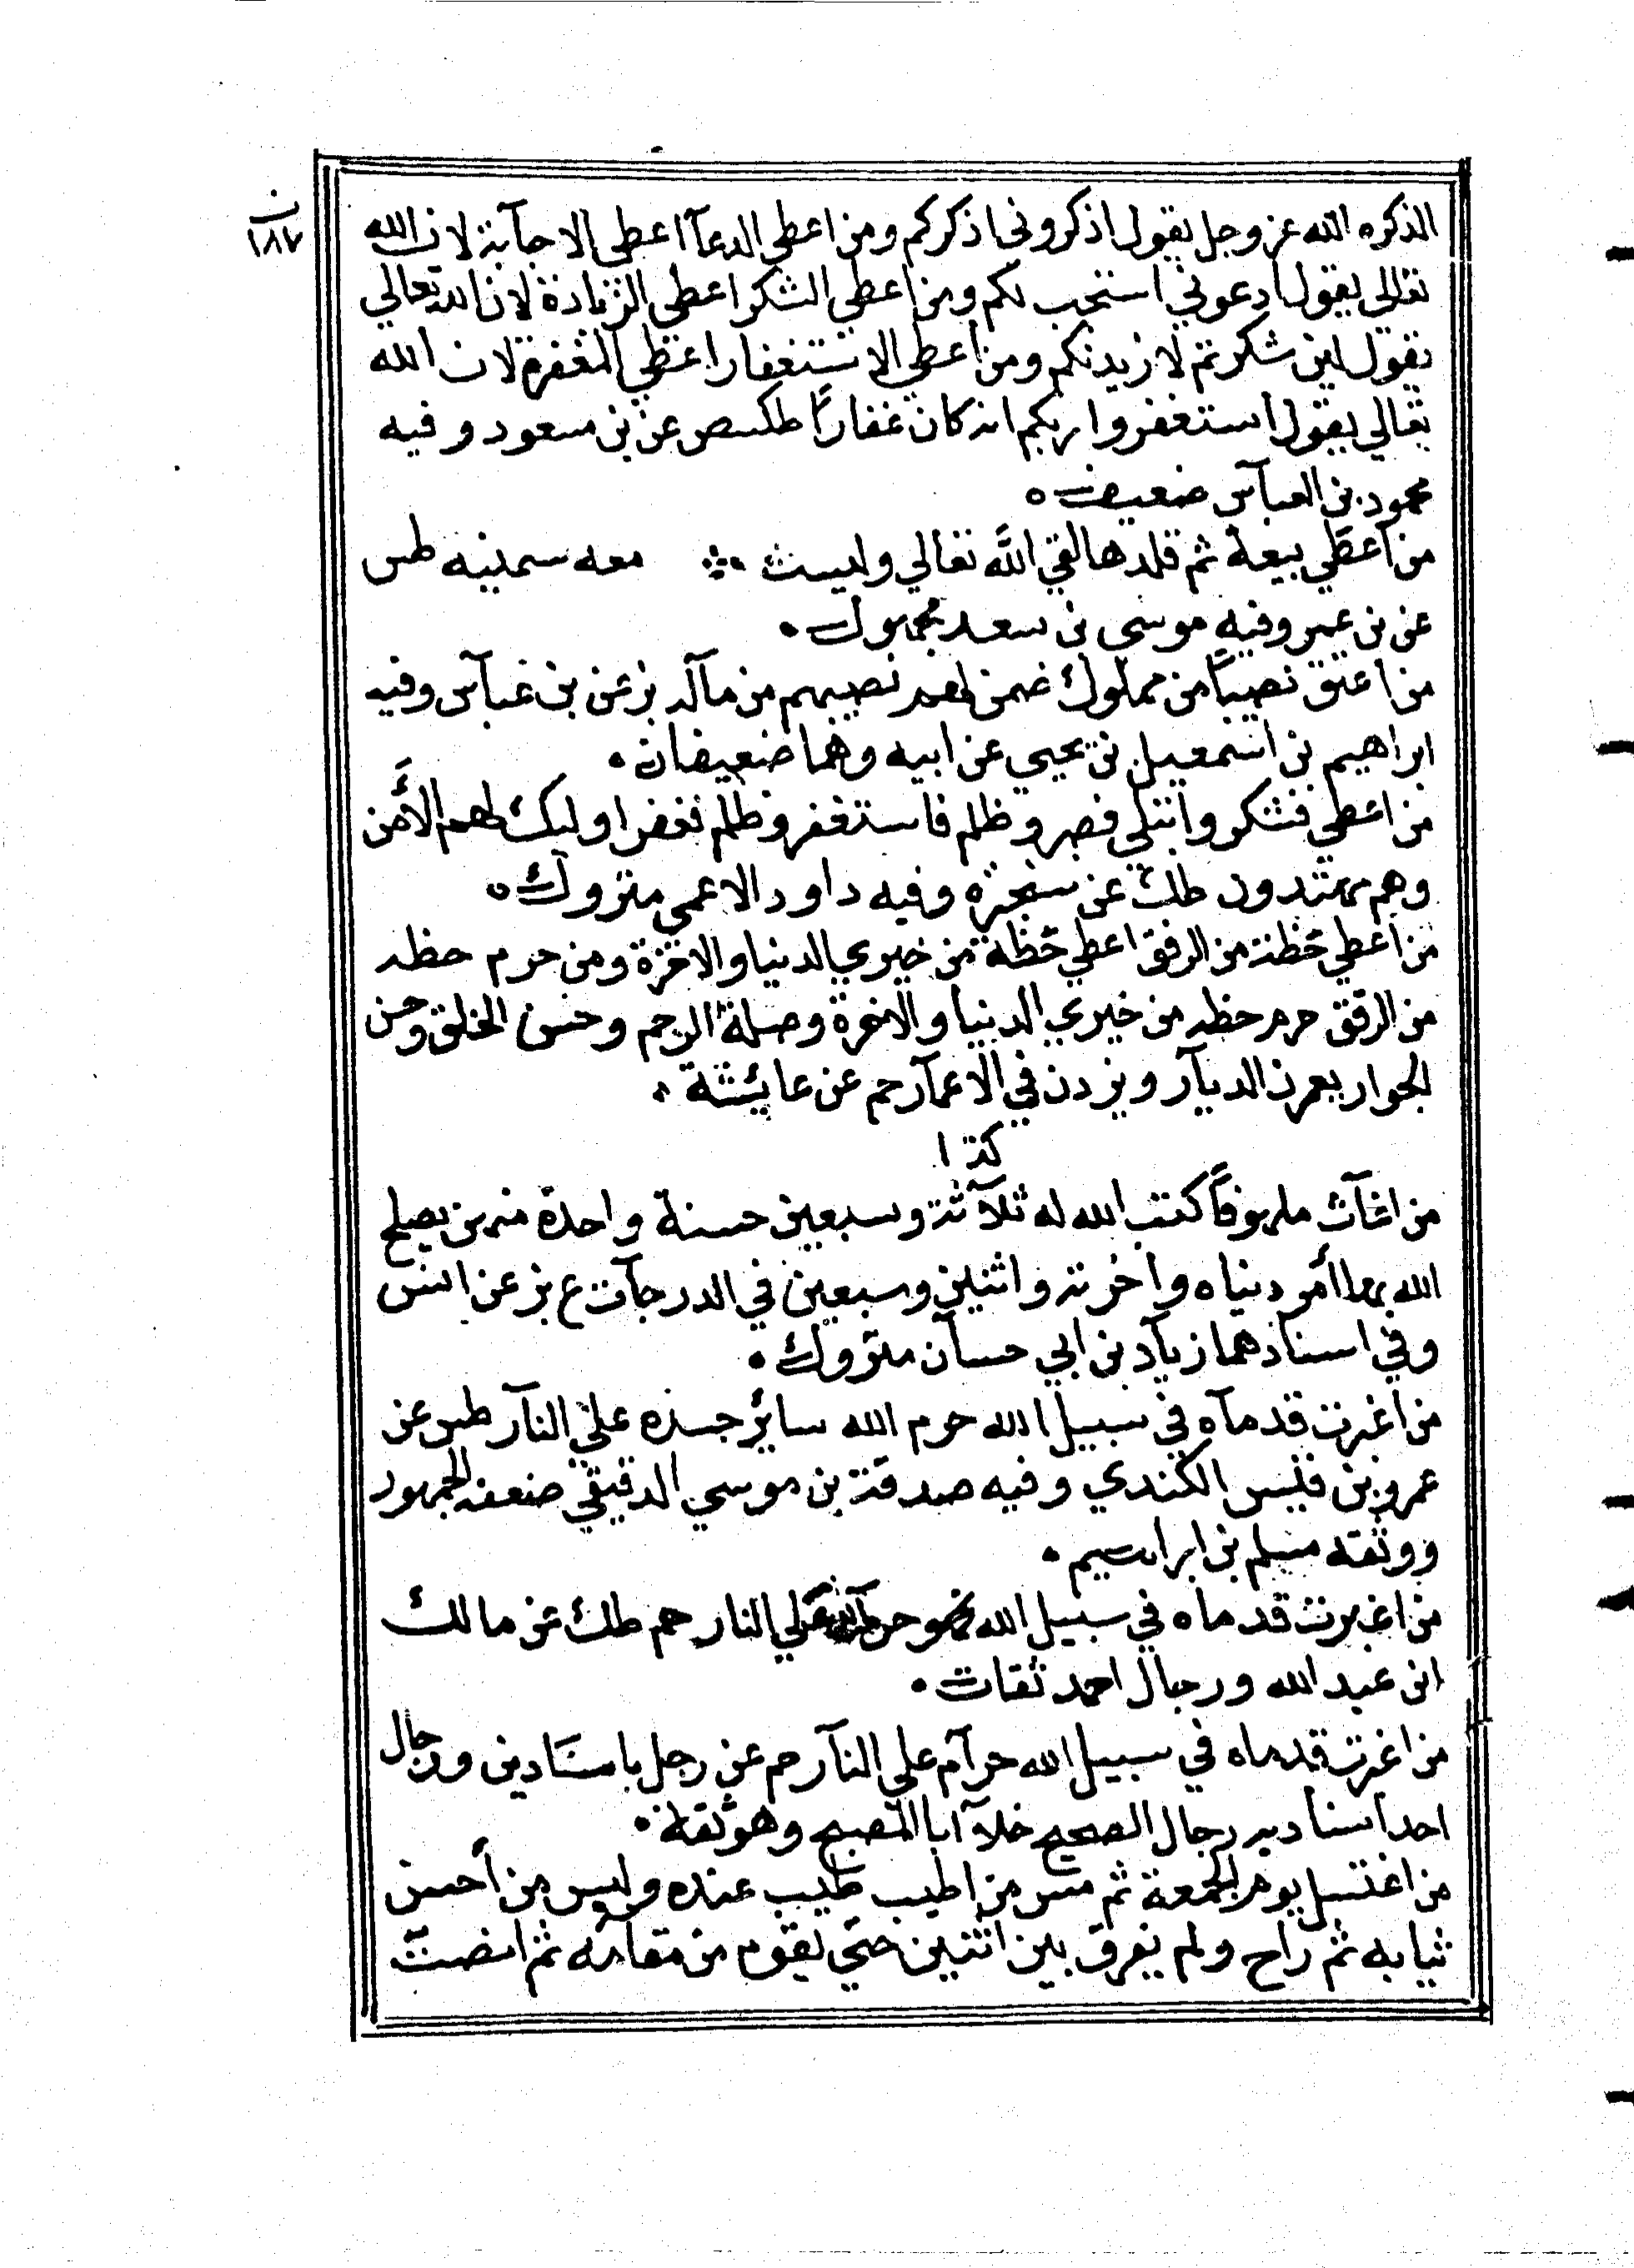 ن
١٨٧
الذكره الله عز وجل يقول اذكروني اذكركم ومن اعطي الدعآ اعطي الاجآبة لان الله
تعالي يقول ادعوني استجب لكم ومن اعطي الشكر اعطي الزيادة لان الله تعالي
يقول لين شكرتم لازيدنكم ومن اعطي الاستغفار اعطي المغفرة لان الله
تعالي يقول استغفروا ربكم انه كان غفارًا طكسص عن بن مسعود وفيه
محمود بن العبآس ضعيف ه
من اعطي بيعة ثم قلدها لقي الله تعالي وليست معه سمينيه طس
عن بن عمر وفيه موسي بن سعد مجهول .
من اعتق نصيبًا من مملوك ضمن لهم نصيبهم من مآله بز عن بن عبآس وفيه
ابراهيم بن اسمعيل بن يحيي عن ابيه وهما ضعيفان .
من اعطي فشكر وابتلي فصبر وظلم فاستغفر وظلم فغفر اوليك لهم الأمن
وهم مهتدون طك عن سخبرة وفيه داود الاعمي متروك ه
من اعطي حظه من الرفق اعطي حظه من خيري الدنيا والاخرة ومن حرم حظه
من الرفق حرم حظه من خيري الدنيا والاخرة وصلة الرحم وحسن الخلق وحسن
الجوار يعمرن الديآر ويزدن في الاعمآر حم عن عايشة .
كذا
من اغآث ملهوفًا كتب الله له ثلآثة وسبعين حسنة واحدة منهن يصلح
الله بها أمر دنياه واخرته واثنين وسبعين في الدرجآت ع بز عن انس
وفي اسنادهما زيآد بن ابي حسآن متروك .
من اغبرت قدمآه في سبيل الله حرم الله سائر جسده علي النآر طس عن
عمرو بن قيس الكندي وفيه صدقة بن موسي الدقيقي ضعفه الجمهور
ووثقه مسلم بن ابراهيم .
من اغبرت قدماه في سبيل الله فهو حرآم علي النار حم طك عن مالك
ابن عبد الله ورجال احمد ثقات .
من اغبرت قدماه في سبيل الله حرآم علي النآر حم عن رجل باسنادين ورجال
احد اسناديه رجال الصحيح خلآ ابا المصبح وهو ثقة .
من اغتسل يوم الجمعة ثم مس من اطيب طيب عنده ولبس من أحسن
ثيابه ثم راح ولم يفرق بين اثنين حتي يقوم من مقامه ثم انصت